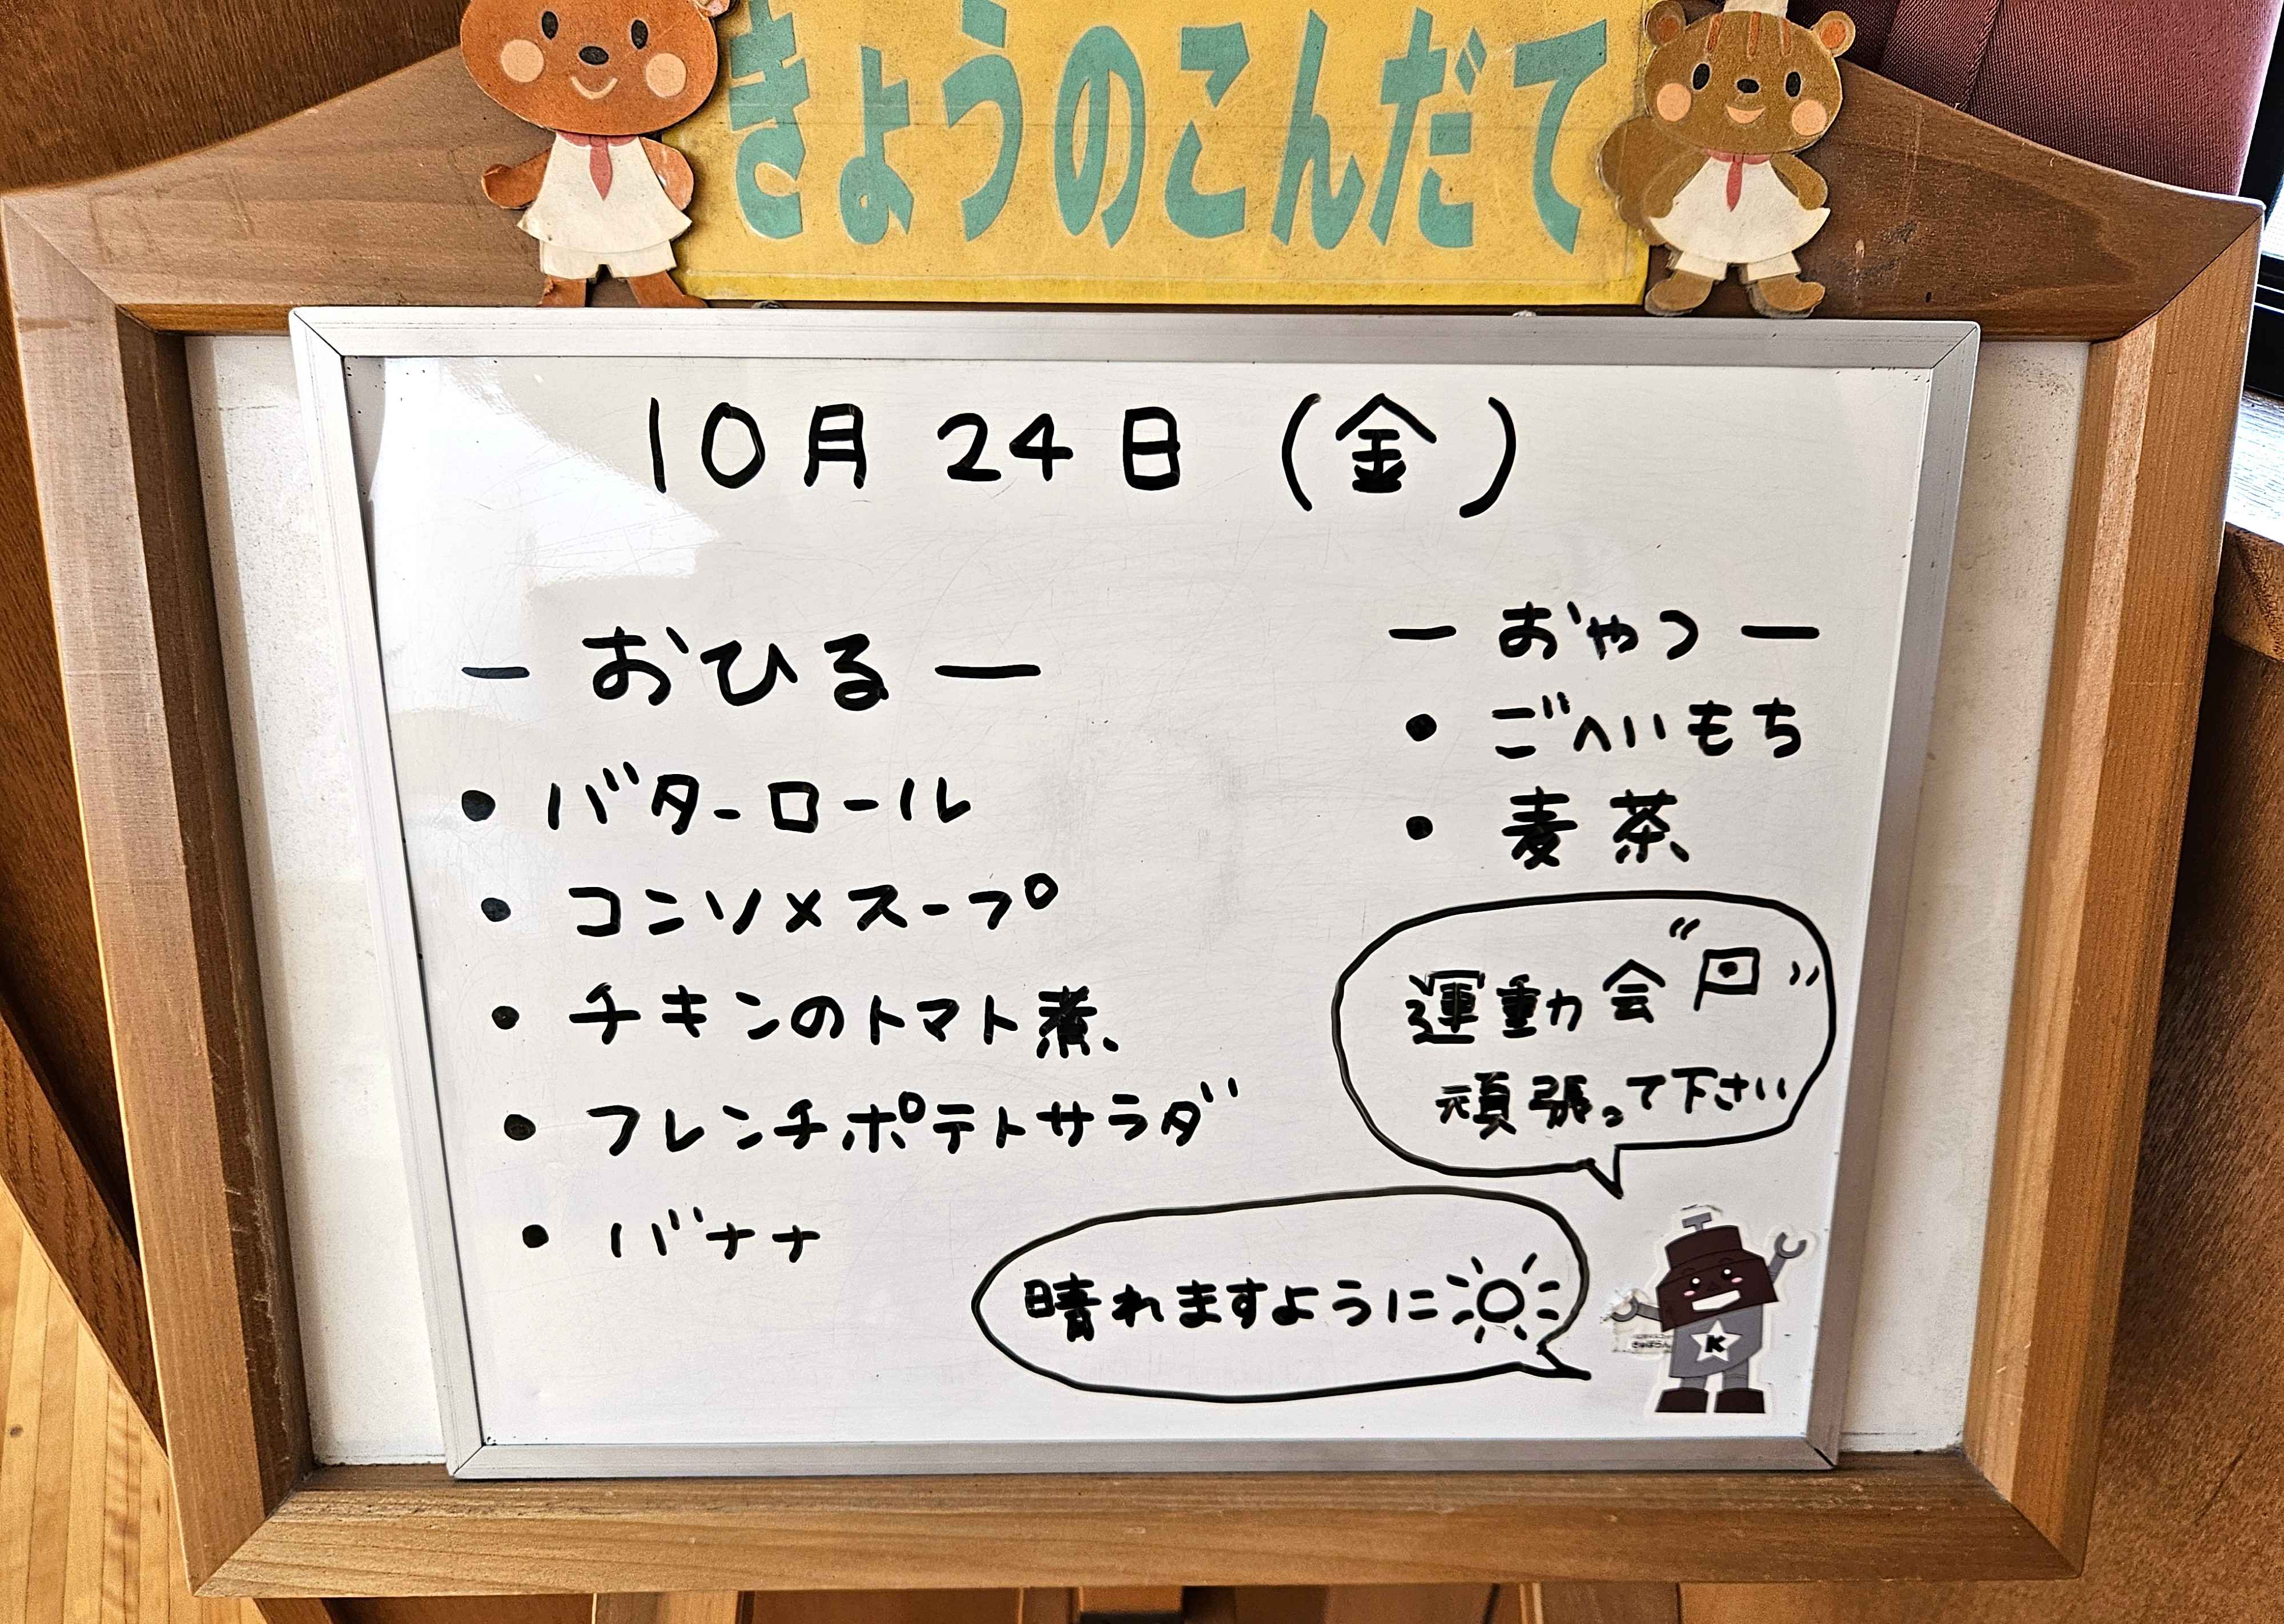 きょうのこんだて
10月24日(金)
ーおひるー
・バターロール
・コンソメスープ
・チキンのトマト煮
・フレンチポテトサラダ
・バナナ
ーおやつー
・ごへいもち
・麦茶
運動会
頑張って下さい
晴れますように
K